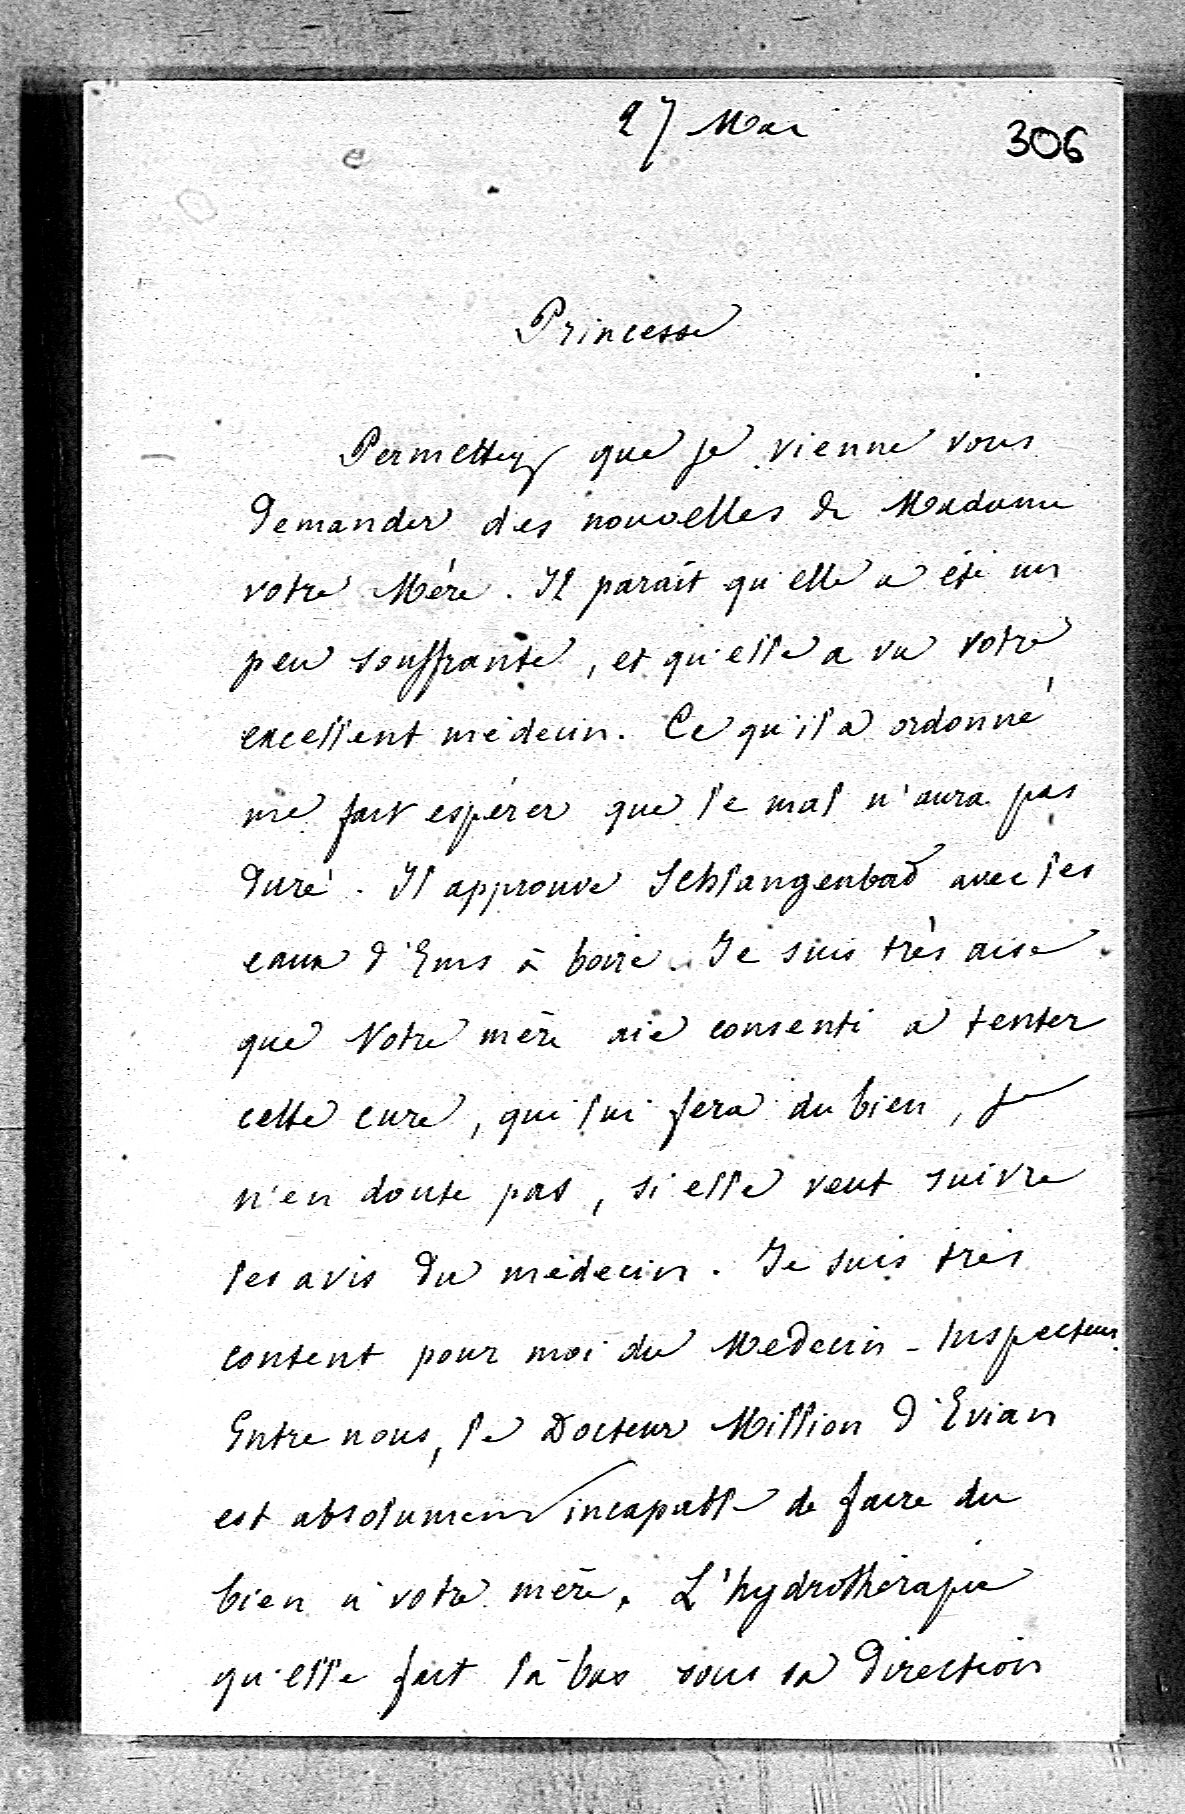 27 Mai
306
Princesse
Permettez que je vienne vous
demander des nouvelles de Madame
votre Mère. Il parait qu'elle a été un
peu souffrante, et qu'elle a vu votre
excellent médecin. Ce qu'il a ordonné
me fait espérer que le mal n'aura pas
duré. Il approuve Schlangenbad avec les
eaux d'Ems à boire. Je suis très aise
que Votre mère aie consenti à tenter
cette cure, qui lui fera du bien, je
n'en doute pas, si elle veut suivre
les avis du médecin. Je suis très
content pour moi du Medecin-Inspecteur.
Entre nous, le Docteur Million d'Evian
est absolument incapable de faire du
bien à votre mère. L'hydrothérapie
qu'elle fait là-bas sous sa direction